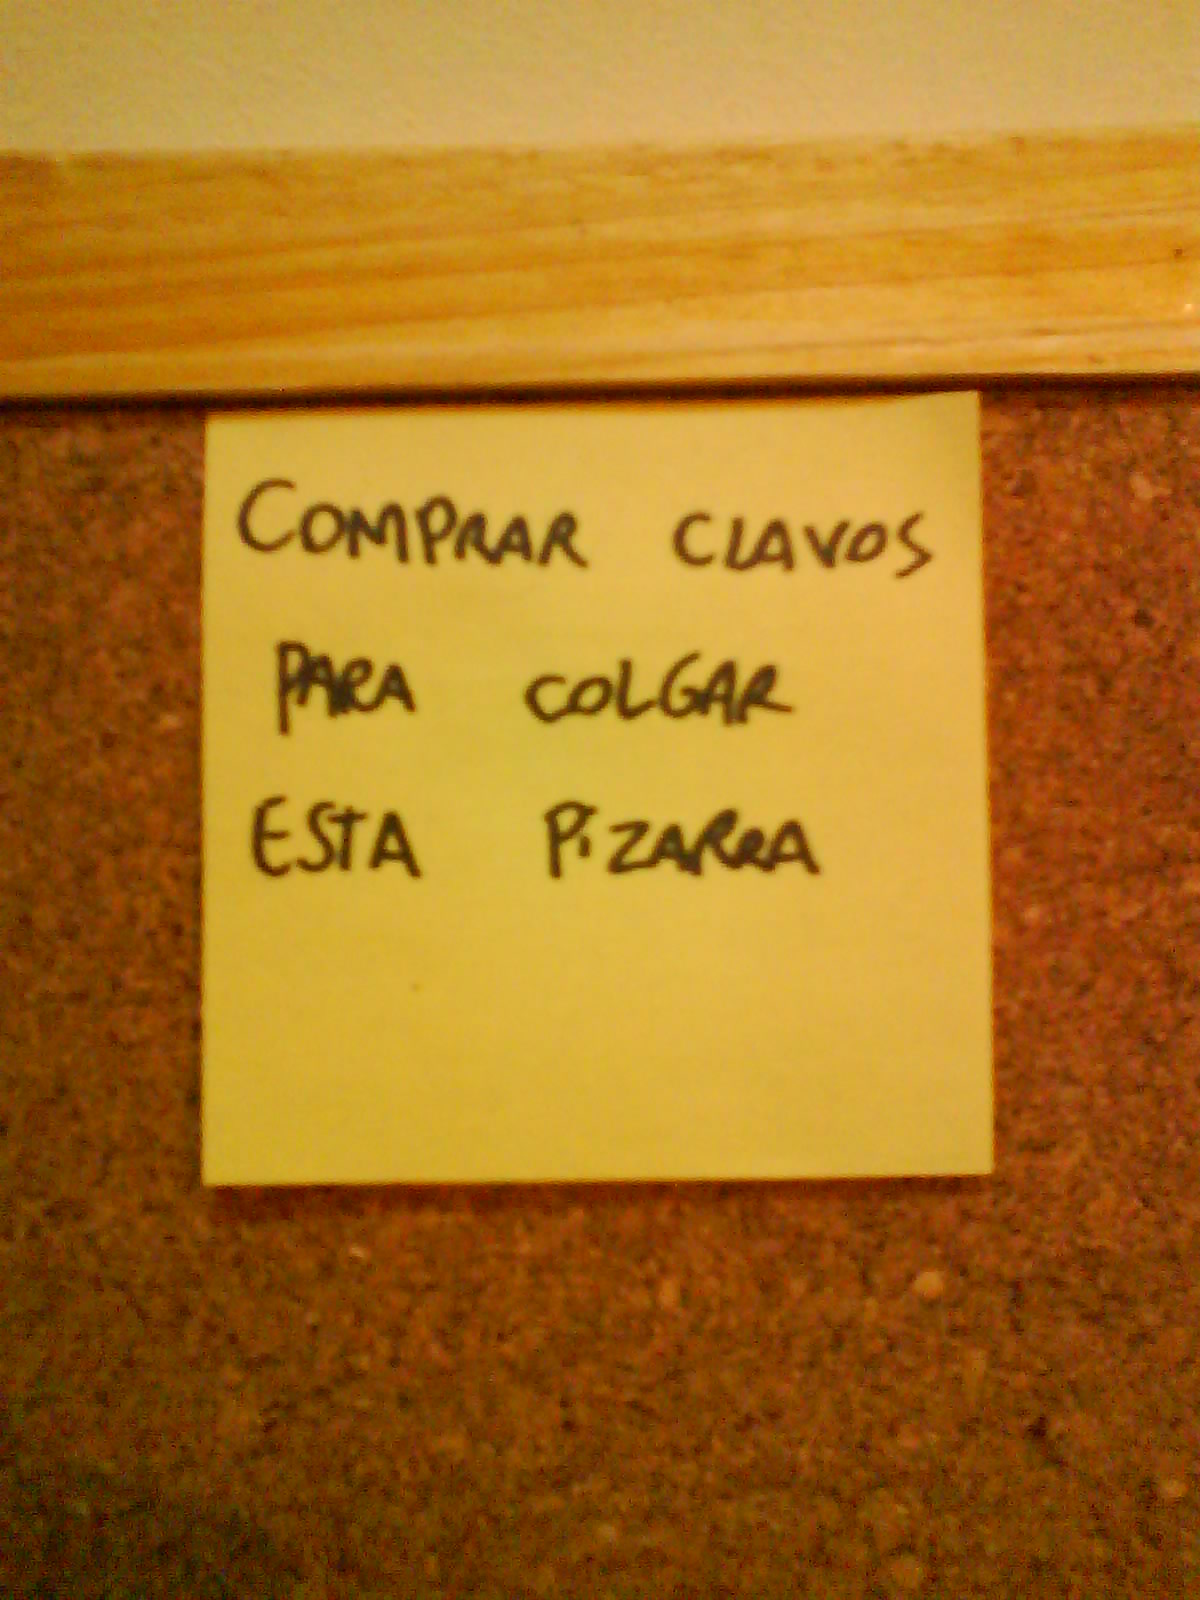 COMPRAR CLAVOS
PARA COLGAR
ESTA PiZARRA